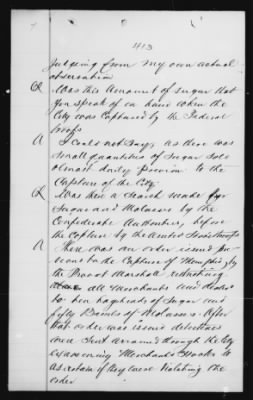 413
judging from my own actual
observation
Q Was this amount of sugar that
you speak of on hand when the
City was Captured by the Federal
troops
A I could not say, as there was
small quantities of Sugar sold
almost daily previous to the
Capture of the City
Q Was there a search made for
Sugar and Molasses by the
Confederate Authorities, before
the Capture by the United States troops
A There was an order issued pre-
vious to the Capture of Memphis, by
the Provost Marshall restricting
all Merchants and dealers
to ten hogsheads of Sugar and
fifty Barrels of Molasses. After
that order was issued detectives
were sent around through the City
examining Merchants Stocks to
ascertain if they were Violating the
order